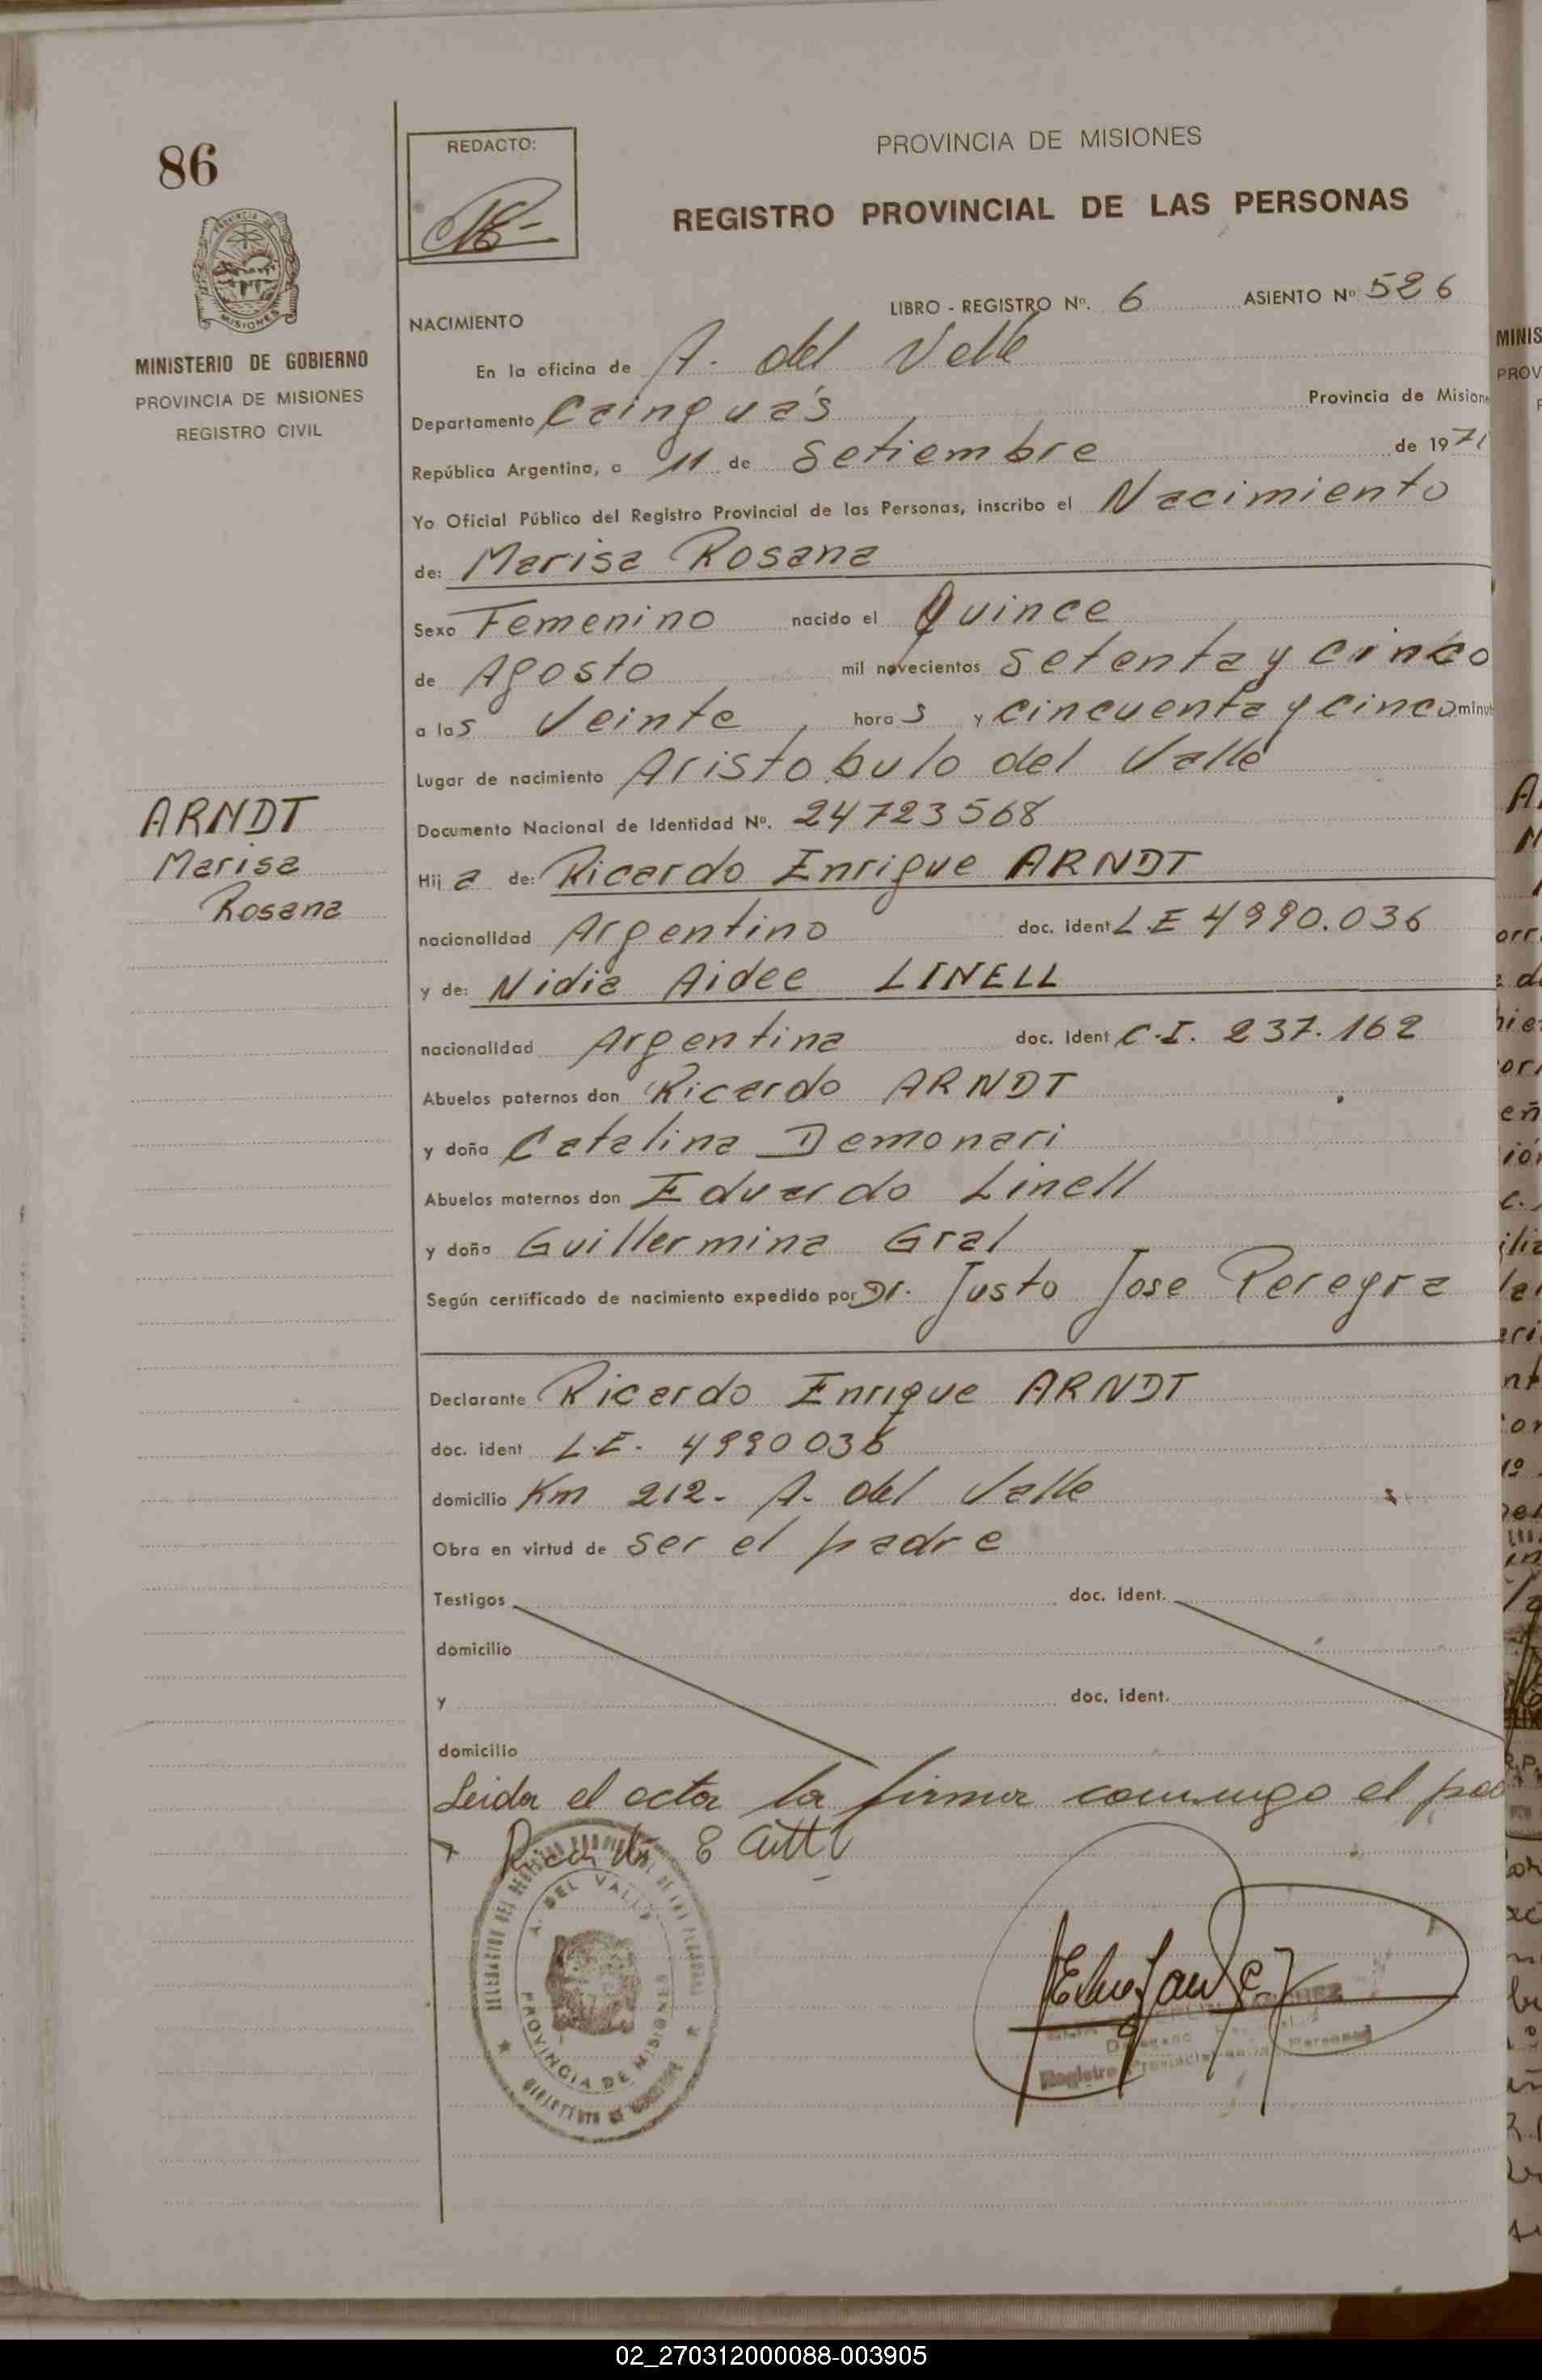 86
REDACTO:
PROVINCIA DE MISIONES
REGISTRO PROVINCIAL DE LAS PERSONAS
MINISTERIO DE GOBIERNO
PROVINCIA DE MISIONES
REGISTRO CIVIL
LIBRO - REGISTRO Nº. 6 ASIENTO Nº 526
NACIMIENTO
En la oficina de A. del Valle
Departamento Cainguás Provincia de Misione
República Argentina, a 11 de Setiembre de 197
Yo Oficial Público del Registro Provincial de las Personas, inscribo el Nacimiento
de: Marisa Rosana
Sexo Femenino nacido el Quince
de Agosto mil novecientos setenta y cinco
a las Veinte horas y cincuenta y cinco minut
Lugar de nacimiento Aristobulo del Valle
ARNDT
Marisa
Rosana
Documento Nacional de Identidad Nº. 24723568
Hij a de: Ricardo Enrique ARNDT
nacionalidad Argentino doc. ident L E 4990.036
y de: Nidia Aidee LINELL
nacionalidad Argentina doc. ident C.I. 237.162
Abuelos paternos don Ricardo ARNDT
y doña Catalina Demonari
Abuelos maternos don Eduardo Linell
y doña Guillermina Gral
Según certificado de nacimiento expedido por Dr. Justo Jose Pereyra
Declarante Ricardo Enrique ARNDT
doc. ident L.E. 4990036
domicilio Km 212- A. del Valle
Obra en virtud de ser el padre
Testigos doc. ident.
domicilio
y doc. ident.
domicilio
Leida el acta la firma conmigo el pad
A. DEL VALLE
PROVINCIA DE MISIONES
Registro Provincial de las Personas
02_270312000088-003905